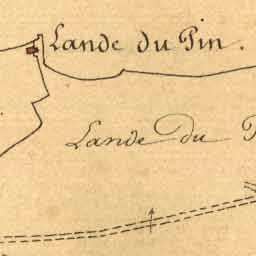 Lande du Pin.
Lande du